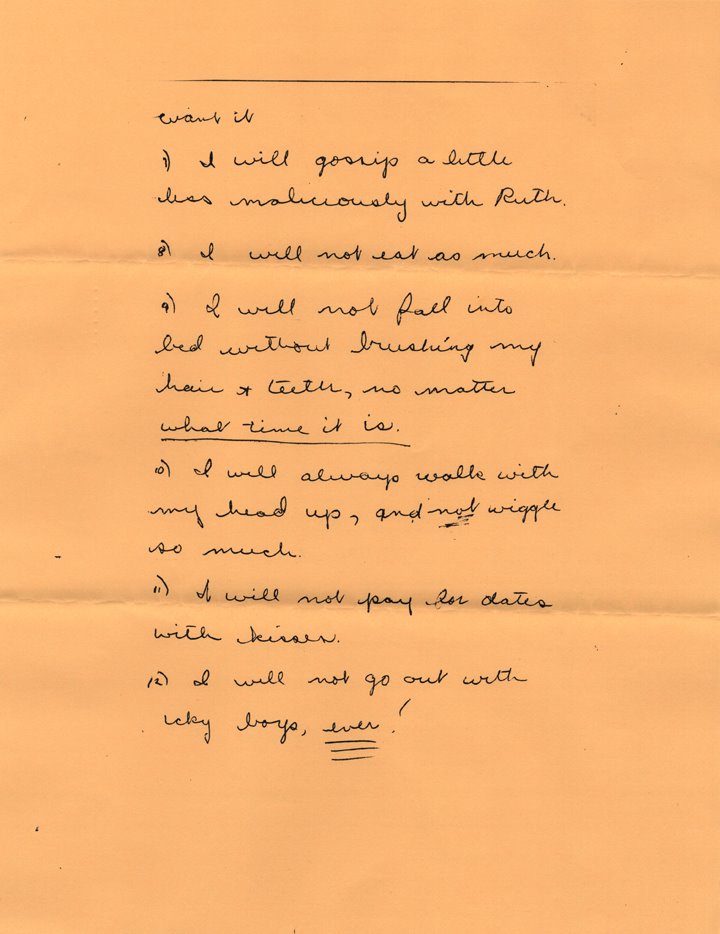 want it
7) I will gossip a little
less maliciously with Ruth.
8) I will not eat as much.
9) I will not fall into
bed without brushing my
hair & teeth, no matter
what time it is.
10) I will always walk with
my head up, and not wiggle
so much.
11) I will not pay for dates
with kisses.
12) I will not go out with
icky boys, ever!